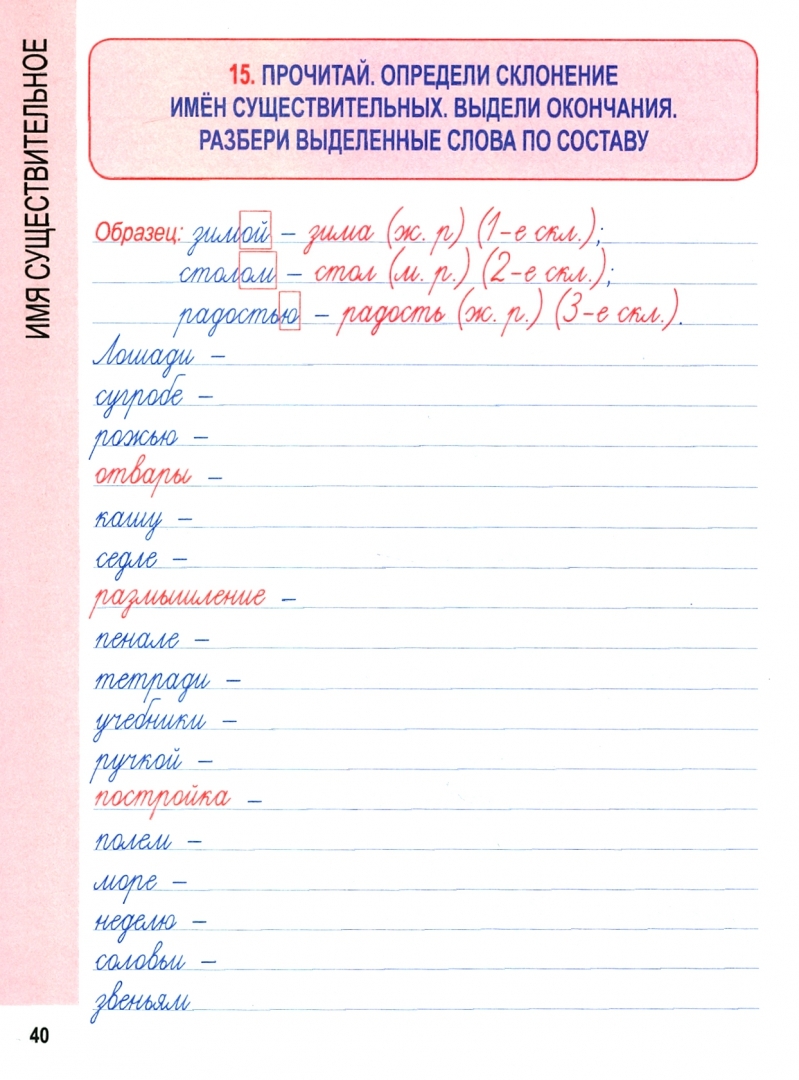 ИМЯ СУЩЕСТВИТЕЛЬНОЕ
15. ПРОЧИТАЙ. ОПРЕДЕЛИ СКЛОНЕНИЕ
ИМЁН СУЩЕСТВИТЕЛЬНЫХ. ВЫДЕЛИ ОКОНЧАНИЯ.
РАЗБЕРИ ВЫДЕЛЕННЫЕ СЛОВА ПО СОСТАВУ
Образец: зимой – зима (ж. р) (1-е скл.);
столом – стол (м. р.) (2-е скл.);
радостью – радость (ж. р.) (3-е скл.).
Лошади –
сугробе –
рожью –
отвары –
кашу –
седле –
размышление –
пенале –
тетради –
учебники –
ручкой –
постройка –
полем –
море –
неделю –
соловьи –
звеньям
40